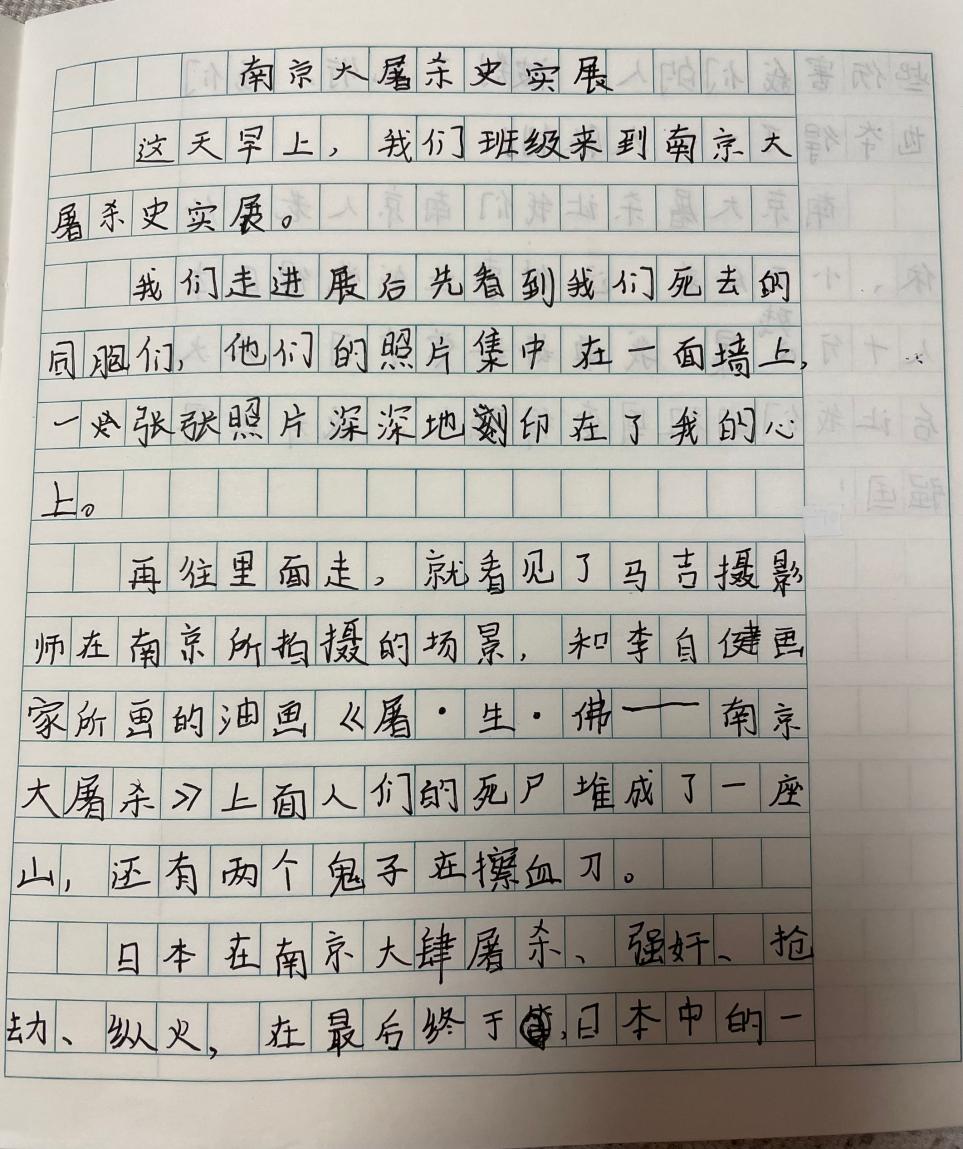 南京大屠杀史实展
这天早上，我们班级来到南京大
屠杀史实展。
我们走进展后先看到我们死去的
同胞们，他们的照片集中在一面墙上，
一张张照片深深地刻印在了我的心
上。
再往里面走，就看见了马吉摄影
师在南京所拍摄的场景，和李自健画
家所画的油画《屠·生·佛——南京
大屠杀》上面人们的死尸堆成了一座
山，还有两个鬼子在擦血刀。
日本在南京大肆屠杀、强奸、抢
劫、纵火，在最后终于，日本中的一